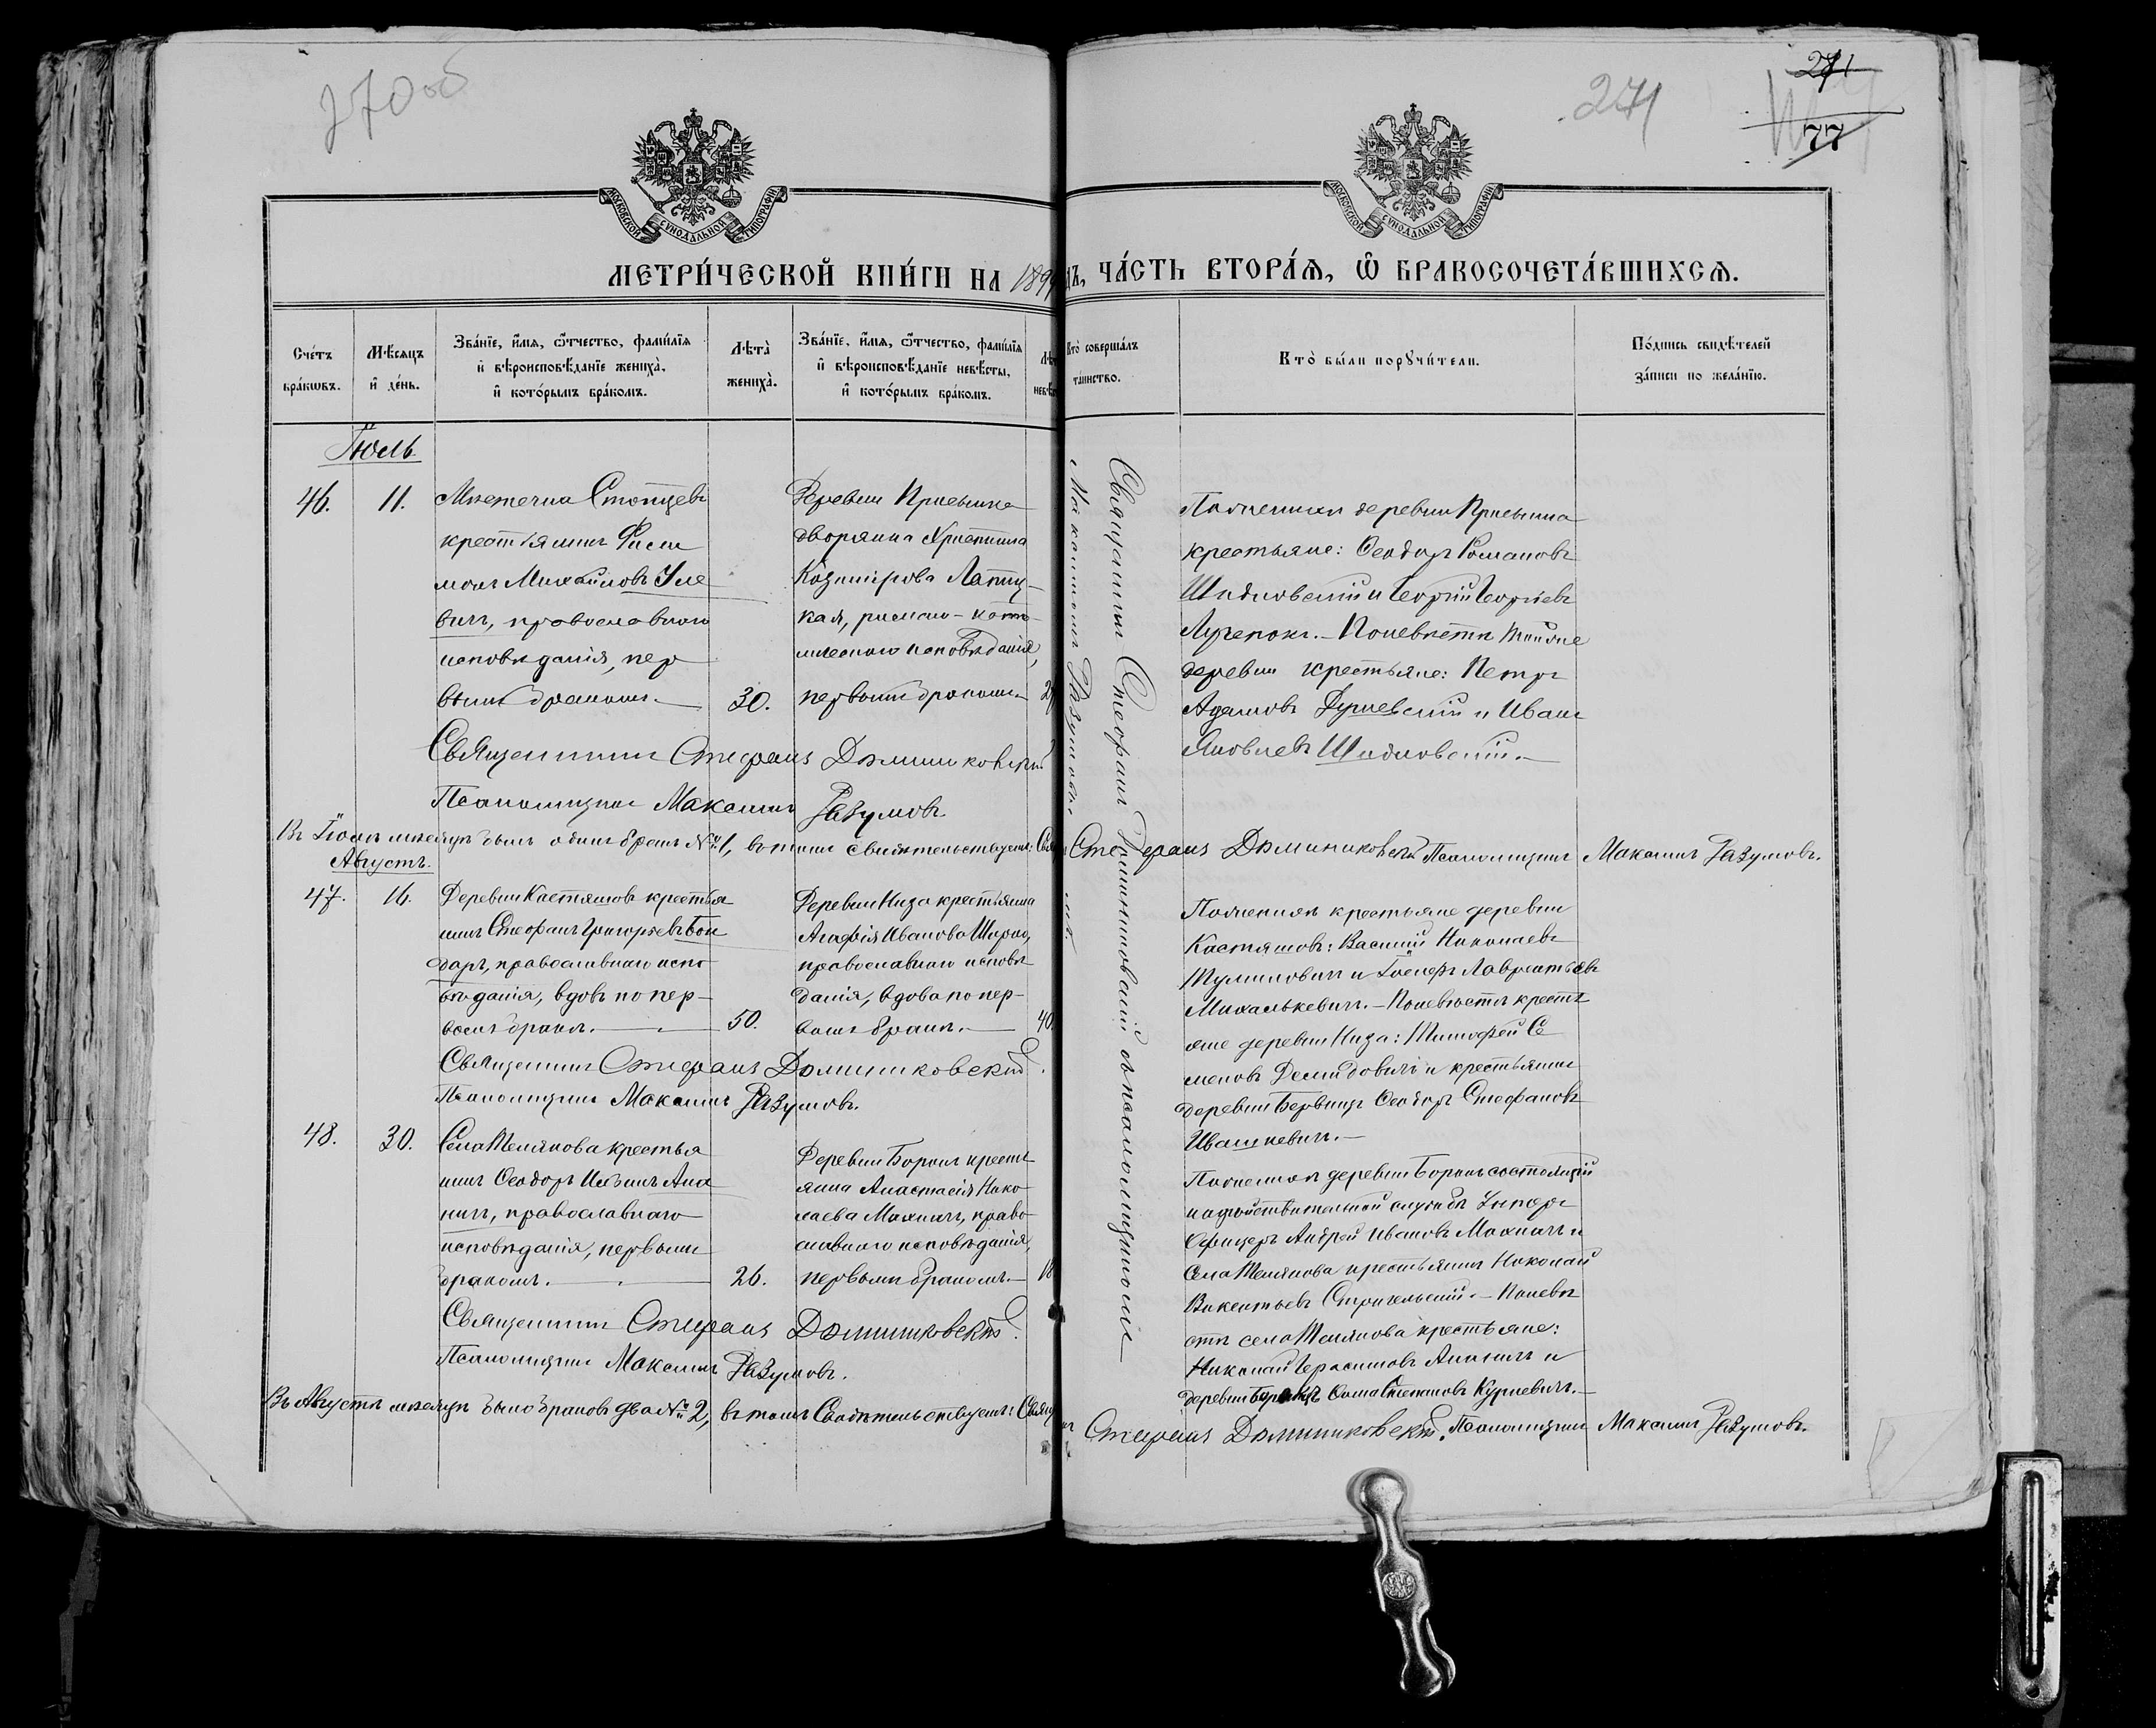 270 об
271
271
77
МОСКОВСКОЙ СѴНОДАЛЬНОЙ ТИПОГРАФІИ
МОСКОВСКОЙ СѴНОДАЛЬНОЙ ТИПОГРАФІИ
МЕТРИ́ЧЕСКОЙ КНИ́ГИ НА 1899
ЧА́СТЬ ВТОРА́Ѧ, Ѿ БРАКОСОЧЕТА́ВШИХСѦ.
Сче́тъ бра́кѡвъ.
Мѣ́сѧцъ и҆ де́нь.
Зва́нїе, и҆́мѧ, ѻ҆́тчество, фами́лїѧ
и҆ вѣроисповѣ́данїе жениха̀,
и҆ кото́рымъ бра́комъ.
Лѣта̀ жениха̀.
Зва́нїе, и҆́мѧ, ѻ҆́тчество, фами́лїѧ
и҆ вѣроисповѣ́данїе невѣ́сты,
и҆ кото́рымъ бра́комъ.
Кто̀ соверша́лъ
та́инство.
Кто̀ бы́ли порꙋчи́тели.
По́дпись свидѣ́телей
за́писи по жела́нїю.
Іюль
46.
11.
Мѣстечка Столпцевъ
крестьянинъ Фили
монъ Михайловъ Уле
вичъ, православного
исповѣданія, пер
вымъ бракомъ.
30.
Деревни Присынка
дворянка Христина
Казимірова Лапиц-
кая, римско-като
лическаго исповѣданія,
первымъ бракомъ
По женихѣ деревни Присынка
крестьяне: Ѳеодоръ Романовъ
Шидловскій и Георгій Георгіевъ
По невѣстѣ той же
деревни крестьяне: Петръ
Адамовъ и Иванъ
Яковлевъ Шидловскій.
Священникъ Стефанъ Доминиковскій
Псаломщикъ Максимъ Разумовъ.
Въ Іюлѣ мѣсяцѣ былъ одинъ бракъ № 1, въ томъ свидѣтельствуемъ:
Стефанъ Доминиковскій Псаломщикъ Максимъ Разумовъ.
Августъ.
47.
16.
Деревни Кастяшовъ крестья
нинъ Стефанъ Григорьевъ Бон
даръ, православнаго испо
вѣданія, вдовъ по пер-
вомъ бракѣ.
50.
Деревни Низа крестьянка
Агафія Иванова
православнаго исповѣ
данія, вдова по пер-
вомъ бракѣ.
40
По женихѣ крестьяне деревни
Кастяшовъ: Василій Николаевъ
и Іосифъ Лаврентьевъ
Михалькевичъ. По невѣстѣ кресть
яне деревни Низа: Тимофей Се
меновъ Демидовичъ и крестьянинъ
деревни Ѳеодоръ Стефановъ
Ивашкевичъ.
Священникъ Стефанъ Доминиковскій
Псаломщикъ Максимъ Разумовъ.
48.
30.
Села Телякова крестья
нинъ Ѳеодоръ Ильинъ Ана
ничъ, православнаго
исповѣданія, первымъ
бракомъ.
26.
Деревни Боркъ кресть
янка Анастасія Нико
лаева Махначъ, право
славнаго исповѣданія,
первымъ бракомъ.
18
По женихѣ деревни Боркъ состоящій
на дѣйствительной службѣ Унтеръ
Офицеръ Андрей Ивановъ Махначъ и
села Телякова крестьянинъ Николай
Викентьевъ По невѣ
стѣ села Телякова крестьяне:
Николай Герасимовъ Ананичъ и
деревни Ѳома Степановъ Курневичъ.
Священникъ Стефанъ Доминиковскій
Псаломщикъ Максимъ Разумовъ.
Въ Августѣ мѣсяцѣ было браковъ два № 2, въ томъ свидѣтельствуемъ:
Стефанъ Доминиковскій. Псаломщикъ Максимъ Разумовъ.
Священникъ Стефанъ Доминиковскій съ псаломщикомъ
Максимомъ Разумовымъ.